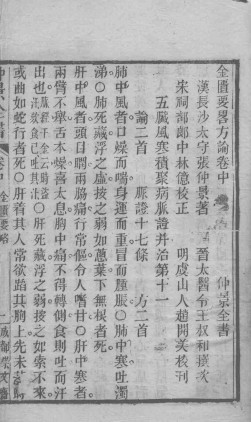 金匱要略方論卷中　仲景全書
漢長沙太守張仲景著　晉太醫令王叔和撰次
宋祠部郎中林億校正　明虞山人趙開美校刊
五臟風寒積聚病脈證并治第十一
論二首　脈證十七條　方二首
肺中風者口燥而喘身運而重冒而腫脹○肺中寒吐濁
涕○肺死臟浮之虛按之弱如葱葉下無根者死
肝中風者頭目瞤兩脇痛行常傴令人嗜甘○肝中寒者
兩臂不舉舌本燥喜太息胸中痛不得轉側食則吐而汗
出也○肝死臟浮之弱按之如索不來
或曲如蛇行者死○肝着其人常欲蹈其胸上先未苦
金匱要略